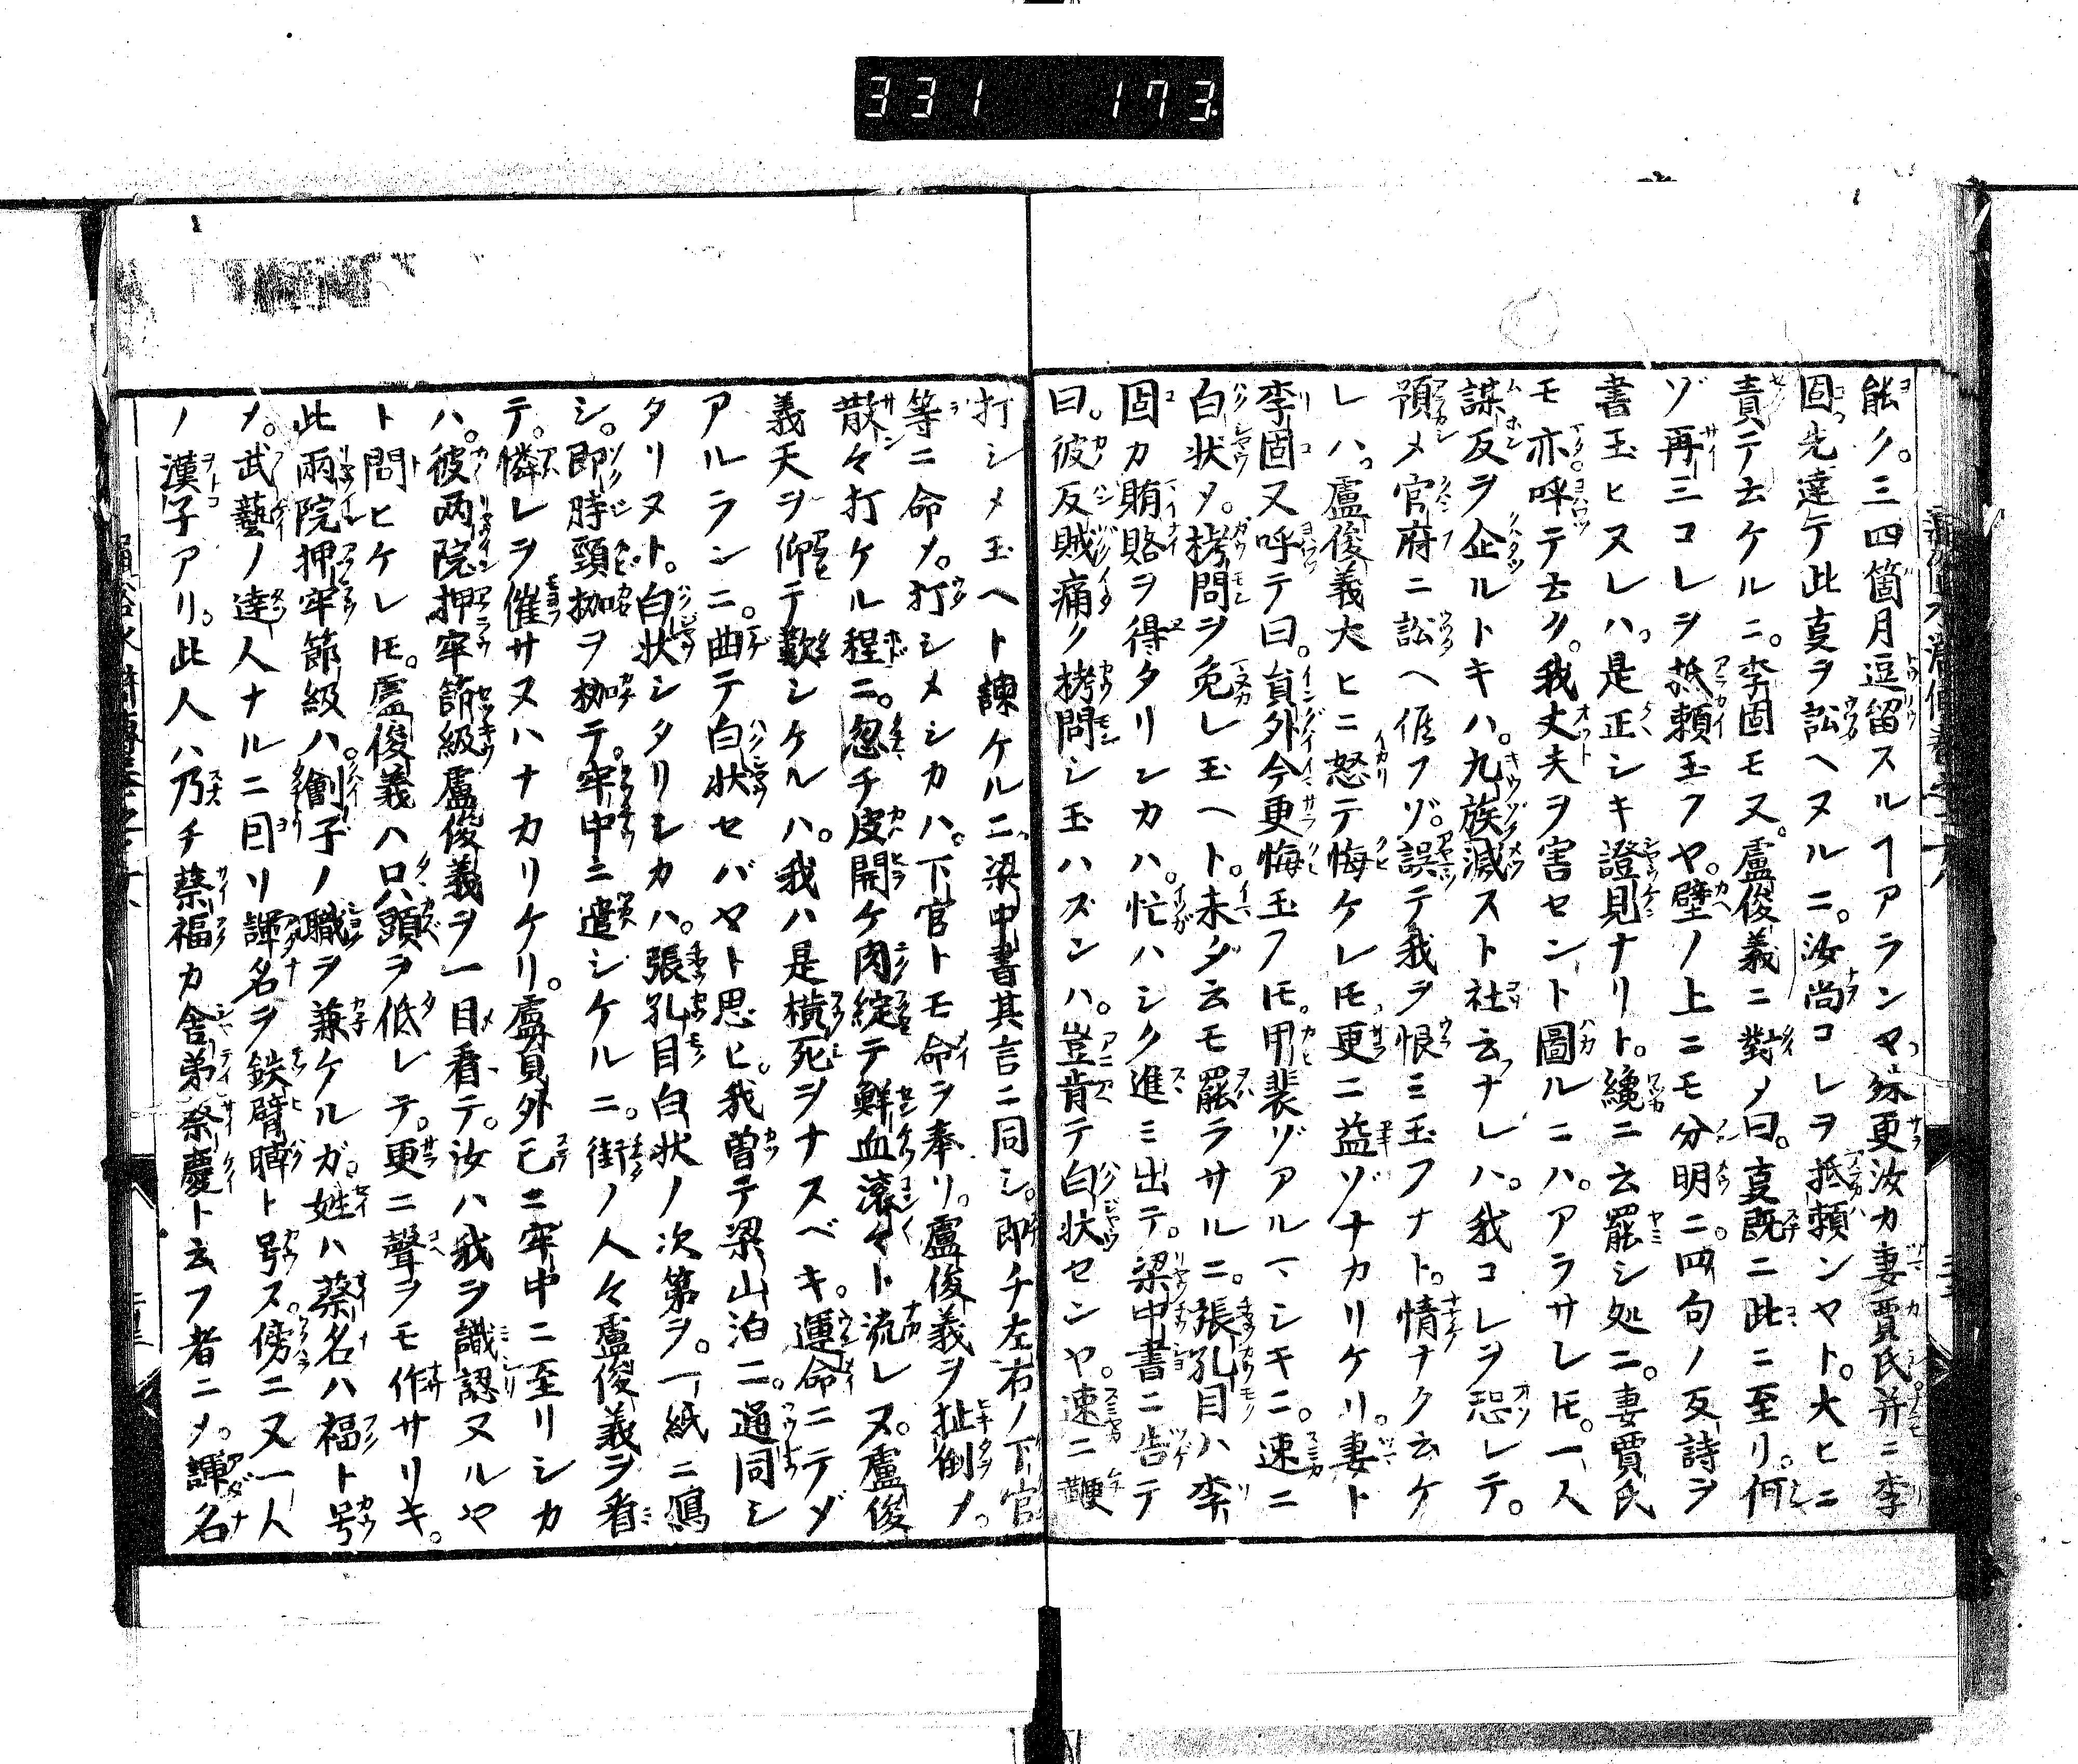 331 173
能ク。三四箇月逗留スルヿアランヤ。殊更汝カ妻賈氏并ニ李
固。先達テ此亊ヲ訟ヘヌルニ。汝尚コレヲ抵頼ンヤト。大ヒニ
責テ云ケルニ。李固モ又。盧俊義ニ對メ曰。亊既ニ此ニ至リ。何
ゾ再三コレヲ抵頼玉フヤ。壁ノ上ニモ分明ニ。四句ノ反詩ヲ
書玉ヒヌレハ。是正シキ證見ナリト。纔ニ云罷シ処ニ。妻賈氏
モ亦呼テ云ク。我丈夫ヲ害セント圖ルニハ。アラサレ𪜈。一人
謀反ヲ企ルトキハ。九族滅スト社云ナレハ。我コレヲ恐レテ。
預メ官府ニ訟ヘ侭フゾ。誤テ我ヲ恨ミ玉フナト。情ナク云ケ
レハ。盧俊義大ヒニ怒テ悔ケレ𪜈更ニ益ゾナカリケリ。妻ト
李固又呼テ曰。貟外今更悔玉フ𪜈。甲裴ゾアルヽシキニ。速ニ
白状メ。拷問ヲ免レ玉ヘト。未ダ云モ罷ラサルニ。張孔目ハ李
固カ賄賂ヲ得タリシカハ。忙ハシク進ミ出テ。梁中書ニ告テ
曰。彼反賊痛ク拷問シ玉ハズンハ。豈肯テ白状センヤ。速ニ鞭
打シメ玉ヘト諫ケルニ。梁中書其言ニ同シ。即チ左右ノ下官
等ニ命メ。打シメシカハ。下官トモ命ヲ奉リ。盧俊義ヲ扯倒メ。
散々打ケル程ニ。忽チ皮開ケ肉綻テ鮮血滚々ト流レヌ。盧俊
義天ヲ仰テ歎シケルハ。我ハ是横死ヲナスベキ。運命ニテゾ
アルランニ。曲テ白状セバヤト思ヒ。我曽テ梁山泊ニ。通同シ
タリヌト。白状シタリシカハ。張孔目白状ノ次第ヲ。一紙ニ寫
シ。即時頸枷ヲ枷テ。牢中ニ遣シケルニ。街ノ人々盧俊義ヲ看
テ。憐レヲ催サヌハナカリケリ。盧貟外已ニ牢中ニ至リシカ
ハ。彼両院押牢節級盧俊義ヲ一目看テ。汝ハ我ヲ識認ヌルヤ
ト問ヒケレ𪜈。盧俊義ハ只頭ヲ低レテ。更ニ聲ヲモ作サリキ。
此兩院押牢節級ハ。劊子ノ職ヲ兼ケルガ。姓ハ蔡名ハ福ト号
メ。武藝ノ達人ナルニ囙リ諢名ヲ鉄臂膊ト号ス。傍ニ又一人
ノ漢子アリ。此人ハ乃チ蔡福カ舎弟蔡慶ト云フ者ニメ。諢名